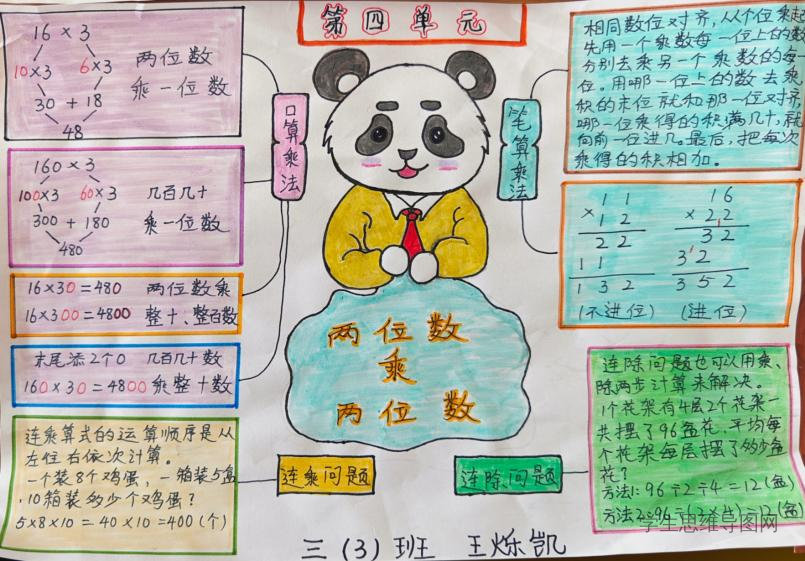 第四单元
16 × 3
10×3 6×3
30 + 18
48
两位数
乘一位数
160 × 3
100×3 60×3
300 + 180
480
几百几十
乘一位数
16×30=480 两位数乘
16×300=4800 整十、整百数
末尾添2个0 几百几十数
160×30=4800 乘整十数
连乘算式的运算顺序是从
左往右依次计算。
一个装8个鸡蛋,一箱装5盒
,10箱装多少个鸡蛋?
5×8×10=40×10=400(个)
口算乘法
笔算乘法
相同数位对齐,从个位乘起
先用一个乘数每一位上的数
分别去乘另一个乘数的每一
位。用哪一位上的数去乘
积的末位就和那一位对齐
哪一位乘得的积满几十,就
向前一位进几。最后,把每次
乘得的积相加。
11
×12
22
11
132
(不进位)
16
×22
32
32
352
(进位)
两位数
乘
两位数
连乘问题
连除问题
连除问题也可以用乘、
除两步计算来解决。
1个花架有4层2个花架一
共摆了96盆花,平均每
个花架每层摆了多少盆
花?
方法1:96÷2÷4=12(盆)
方法2:96÷(2×4)=12(盆)
学生思维导图网
三(3)班 王烁凯